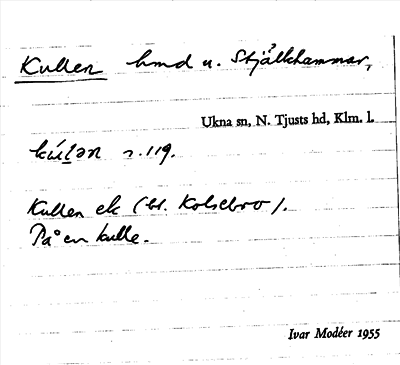 Kullen hmd u. Stjälkhammar,
Ukna sn, N. Tjusts hd, Klm. l.
kúl̲ən s. 119.
Kullen ek (bl. Kolsebro).
På en kulle.
Ivar Modéer 1955